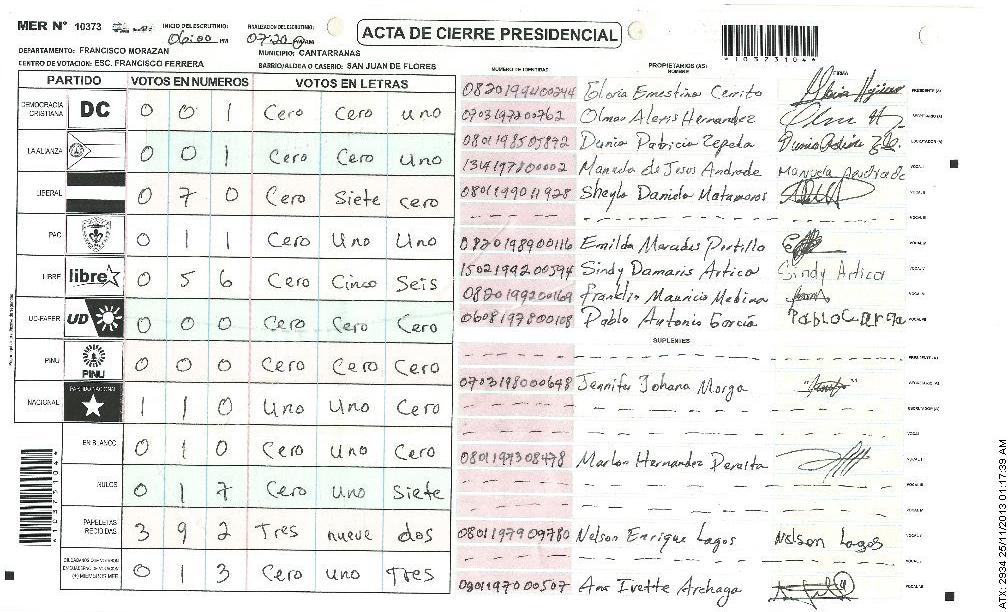 MER Nº 10373
INICIO DEL ESCRUTINIO: 06:00 PM
FINALIZACION DEL ESCRUTINIO: 07:20
ACTA DE CIERRE PRESIDENCIAL
*10373104*
DEPARTAMENTO: FRANCISCO MORAZAN
MUNICIPIO: CANTARRANAS
CENTRO DE VOTACION: ESC. FRANCISCO FERRERA
BARRIO/ALDEA O CASERIO: SAN JUAN DE FLORES
PARTIDO VOTOS EN NUMEROS VOTOS EN LETRAS
DEMOCRACIA CRISTIANA DC 0 0 1 Cero Cero uno
LA ALIANZA 0 0 1 Cero Cero Uno
LIBERAL 0 7 0 Cero Siete cero
PAC 0 1 1 Cero Uno Uno
LIBRE libre 0 5 6 Cero Cinco Seis
UD-FAPER UD 0 0 0 Cero Cero Cero
PINU PINU 0 0 0 Cero Cero Cero
NACIONAL PARTIDO NACIONAL 1 1 0 Uno Uno Cero
EN BLANCO 0 1 0 Cero Uno Cero
NULOS 0 1 7 Cero uno siete
PAPELETAS RECIBIDAS 3 9 2 Tres nueve dos
0 1 3 Cero uno Tres
NUMERO DE IDENTIDAD PROPIETARIOS (AS) NOMBRE FIRMA
0820199400244 Gloria Ernestina Cerrito PRESIDENTE (A)
0903197200762 Olman Alexis Hernandez SECRETARIO (A)
0801198505872 Dunia Patricia Zepeda ESCRUTADOR (A)
1314197800002 Manuela de Jesus Andrade Manuela Andrade VOCAL I
0801199011928 Sheyla Daniela Matamoros VOCAL II
VOCAL III
0820198900116 Emilda Mercedes Portillo VOCAL IV
1502199200594 Sindy Damaris Artica Sindy Artica VOCAL V
0820199200169 Franklin Mauricio Medina VOCAL VI
0608197800108 Pablo Antonio García Pablo Garcia
SUPLENTES
PRESIDENTE (A)
0703198000648 Jennifer Johana Moraga SECRETARIO (A)
ESCRUTADOR (A)
VOCAL I
0801197308478 Marlon Hernandez Peralta
0801197909780 Nelson Enrique Lagos Nelson Lagos
0801197000507 Ana Ivette Archaga
*10373104*
ATX-2934 25/11/2013 01:17:39 AM